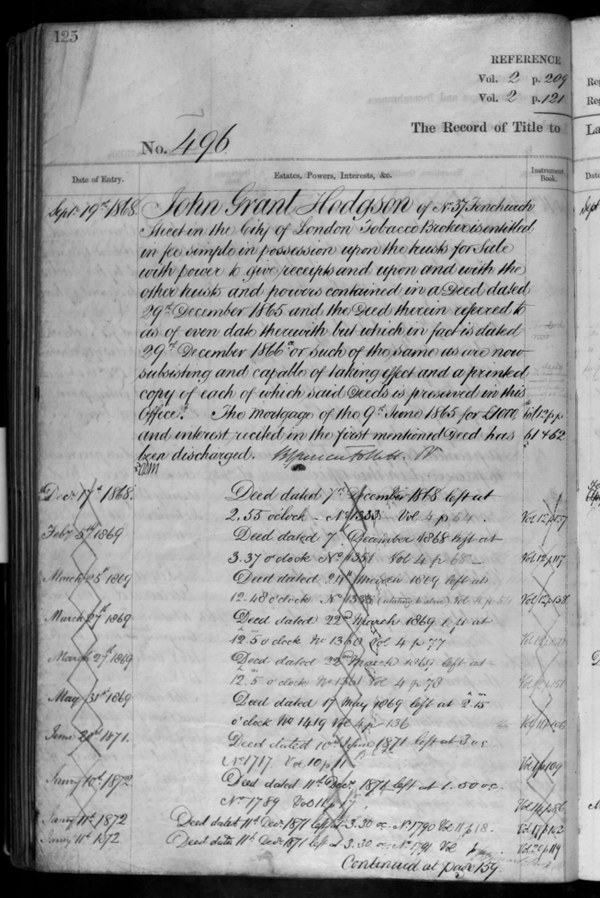 123
REFERENCE
Vol. 2 p. 209
Vol. 2 p. 121
The Record of Title to
La
No. 496
Date of Entry.
Estates, Powers, Interests, &c.
Instrument Book.
Sept. 19th 1868.
John Grant Hodgson of No. 37 Fenchurch
Street in the City of London Tobacco Broker is entitled
in fee simple in possession upon the trusts for Sale
with power to give receipts and upon and with the
other trusts and powers contained in a Deed dated
29th December 1865 and the Deed therein referred to
as of even date therewith but which in fact is dated
29th December 1866 or such of the same as are now
subsisting and capable of taking effect and a printed
copy of each of which said Deeds is preserved in this
Office. The mortgage of the 9th June 1865 for £1000
and interest recited in the first mentioned Deed has 61 & 62
been discharged.
Decr 17th 1868. Deed dated 7th December 1868 left at
2.55 o'clock - No. 1333 - Vol 4 p 54. Vol 12 p 157
Feby 5th 1869 Deed dated 7 December 1868 left at
3.37 o'clock No. 1351 Vol 4 p 68 Vol 12 p 117
March 25th 1869 Deed dated 24th March 1869 left at
12.48 o'clock No. Vol 12 p 158
March 27th 1869 Deed dated 22nd March 1869 left at
12.5 o'clock No Vol 4 p 77
March 27th 1869 Deed dated 22nd March 1869 left at
12.5 o'clock No Vol 4 p 78
May 31st 1869 Deed dated 17 May 1869 left at 2.15
o'clock No 1419 Vol 4 p 136
June 21st 1871. Deed dated 10th June 1871 left at 3 o.c.
No. 1717. Vol 10 p 11 p 109
Jany 10th 1872 Deed dated 11th Decr 1871 left at 1.50 o.c.
No. 1789 Vol 11 p 17
Jany 11th 1872 Deed dated 11th Decr 1871 left at 3.30 o.c. No. 1790 Vol 11 p 18.
Jany 11th 1872 Deed dated 11th Decr 1871 left at 3.30 o.c. No. 1791 Vol Vol 20 p 119
Continued at page 159.